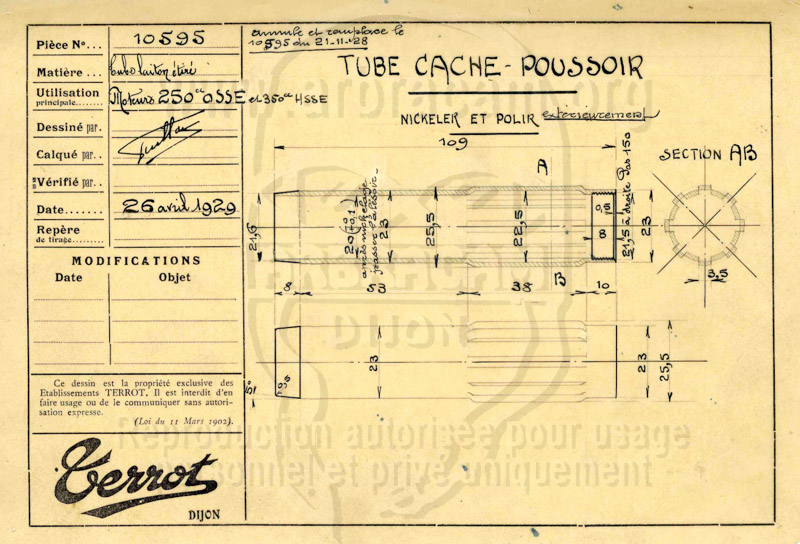 Pièce N°... 10595
Matière...... Tube laiton étiré
Utilisation principale........ Moteurs 250cc OSSE et 350cc HSSE
Dessiné par.
Calqué par..
Vérifié par..
Date....... 26 avril 1929
Repère de tirage.........
MODIFICATIONS
Date Objet
Ce dessin est la propriété exclusive des
Etablissements TERROT. Il est interdit d'en
faire usage ou de le communiquer sans autori-
sation expresse.
(Loi du 11 Mars 1902).
Terrot
DIJON
annule et remplace le
10595 du 21-11-28
TUBE CACHE-POUSSOIR
NICKELER ET POLIR extérieurement
109
A
SECTION AB
21,6
20
après nickelage
passer l'alésoir
23
25,5
22,5
0,5
8
21,5 à droite Pas 150
23
B
3,5
8 53 38 10
23
23
25,5
0,5
15°
www.arbracam.org
DIJON
Reproduction autorisée pour usage
personnel et privé uniquement